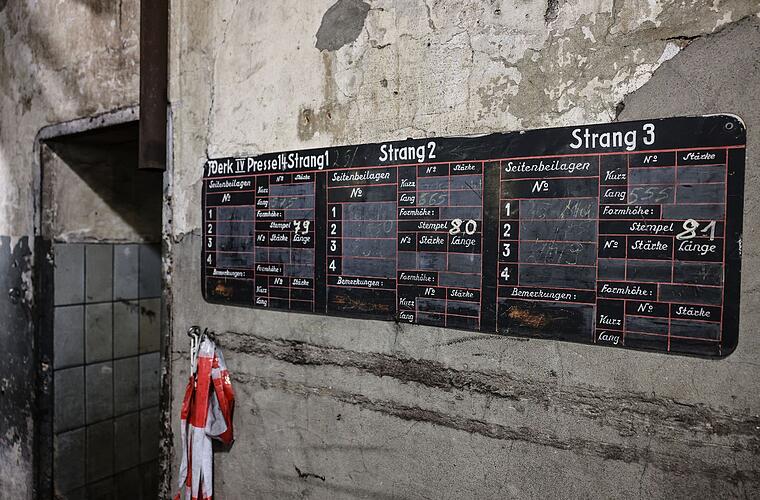 Werk IV Presse 14 Strang 1
Seitenbeilagen
Nº
1
2
3
4
Bemerkungen:
Nº Stärke
Kurz
Lang
Formhöhe:
Stempel 79
Nº Stärke Länge
Formhöhe:
Nº Stärke
Kurz
Lang
Strang 2
Seitenbeilagen
Nº
1
2
3
4
Bemerkungen:
Nº Stärke
Kurz
Lang 665
Formhöhe:
Stempel 80
Nº Stärke Länge
Formhöhe:
Nº Stärke
Kurz
Lang
Strang 3
Seitenbeilagen
Nº
1
2
3
4
Bemerkungen:
Nº Stärke
Kurz
Lang 555
Formhöhe:
Stempel 81
Nº Stärke Länge
Formhöhe:
Nº Stärke
Kurz
Lang